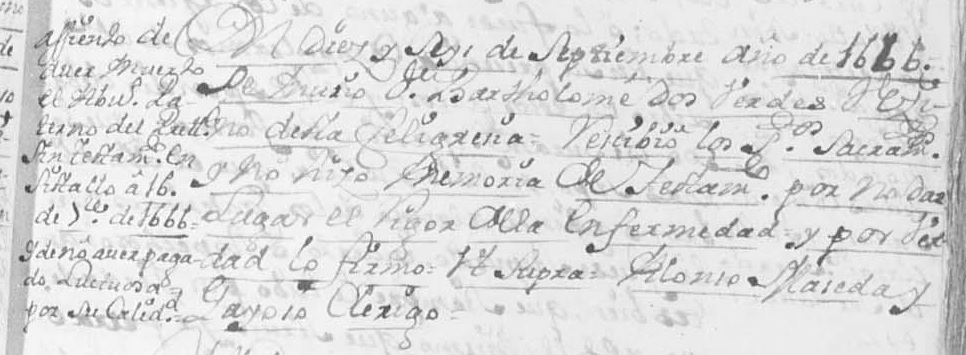 assiento de
auer muerto
el Abu.º Pa-
terno del Lutt.º
sin testam.to en
sitallo â 16.
de 7.re de 1666=
y de no auer paga-
do Luctuosa
por su Calid.d=
En diez y seys de Septiembre año de 1666.
Se murio D.n Bartholome dos Verdes Vezi-
no desta feligresia= Resciuio los S.tos Sacram.tos
y no hizo memoria de Testam.to por no dar
lugar el rigor della enfermedad= y por ver-
dad lo firmo= Vt supra= Alonso Maseda y
Gayoso Clerigo=